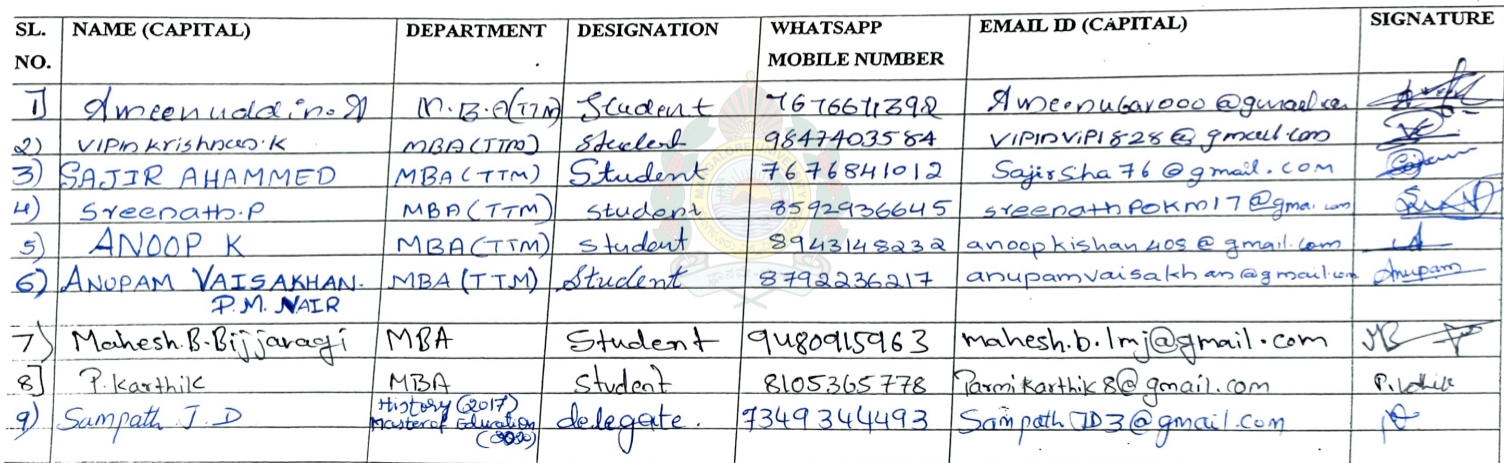 SL. NO. NAME (CAPITAL) DEPARTMENT DESIGNATION WHATSAPP MOBILE NUMBER EMAIL ID (CAPITAL) SIGNATURE
1) Ameenuddin. A M.B.A(TTM) Student 7676671392
2) VIPIN Krishnan.K MBA(TTM) Student 9847403584 VIPINVIPI828@gmail.com
3) SAJIR AHAMMED MBA (TTM) Student 7676841012 Sajirsha76@gmail.com
4) Sreenath.P MBA(TTM) student 8592936645
5) ANOOP K MBA(TTM) student 8943148232 anoopkishan408@gmail.com
6) ANUPAM VAISAKHAN. MBA (TTM) Student 8792236217 anupamvaisakhan@gmail.com Anupam
P.M. NAIR
7) Mahesh.B.Bijjaragi MBA Student 9480915963 mahesh.b.lmj@gmail.com MB
8] P.Karthik MBA Student 8105365778 Parmikarthik8@gmail.com
9) Sampath J.D History (2017) delegate. 7349344493 SampathJD3@gmail.com
Master of Education